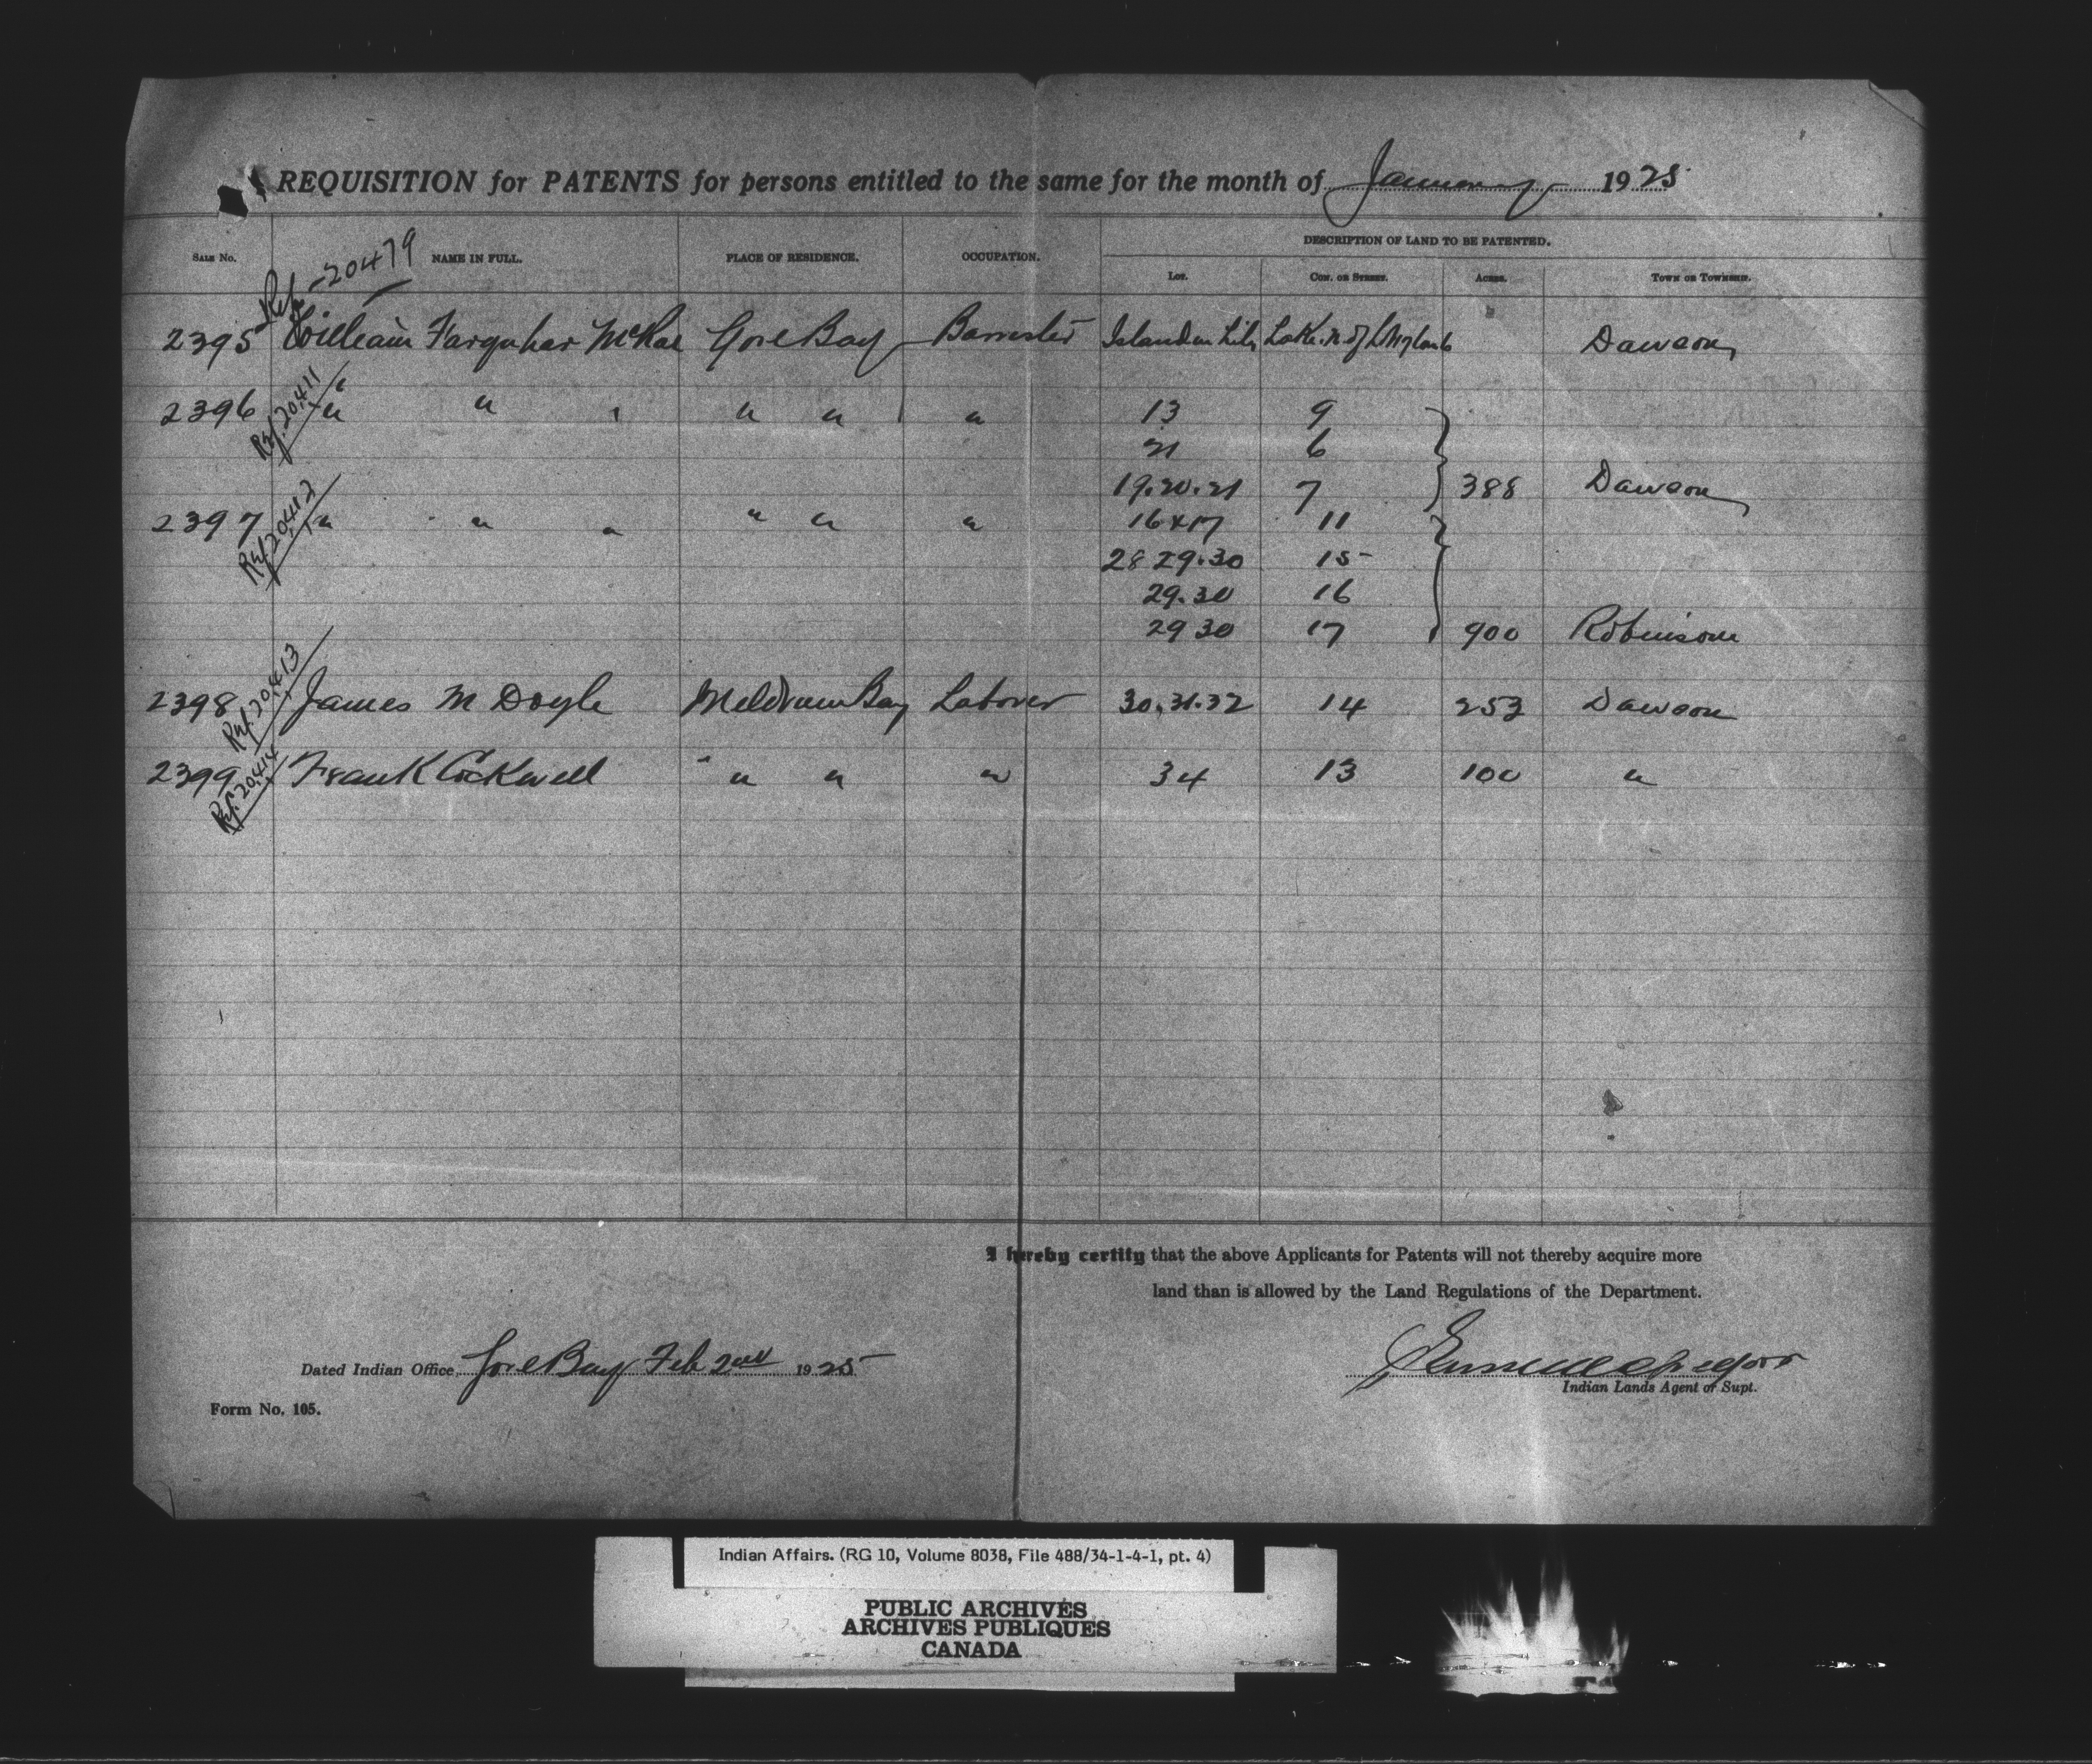 REQUISITION for PATENTS for persons entitled to the same for the month of January 1925
DESCRIPTION OF LAND TO BE PATENTED.
SALE No. NAME IN FULL. PLACE OF RESIDENCE. OCCUPATION. LOT. CON. OR STREET. ACRES. TOWN OR TOWNSHIP.
Ref. 20479
2395 William Farquhar McRae Gore Bay Barrister Island in Lily Lake. N. of Dawson
Ref. 20411
2396 " " " " " " 13 9
21 6
19.20.21 7 388 Dawson
Ref. 20412
2397 " " " " " " 16 & 17 11
28 29.30 15
29.30 16
29 30 17 900 Robinson
Ref. 20413
2398 James M Doyle Meldrum Bay Laborer 30.31.32 14 253 Dawson
Ref. 20414
2399 Frank Cockwell " " " 34 13 100 "
I hereby certify that the above Applicants for Patents will not thereby acquire more
land than is allowed by the Land Regulations of the Department.
Dated Indian Office, Gore Bay Feb 2nd 1925
Indian Lands Agent or Supt.
Form No. 105.
Indian Affairs. (RG 10, Volume 8038, File 488/34-1-4-1, pt. 4)
PUBLIC ARCHIVES
ARCHIVES PUBLIQUES
CANADA